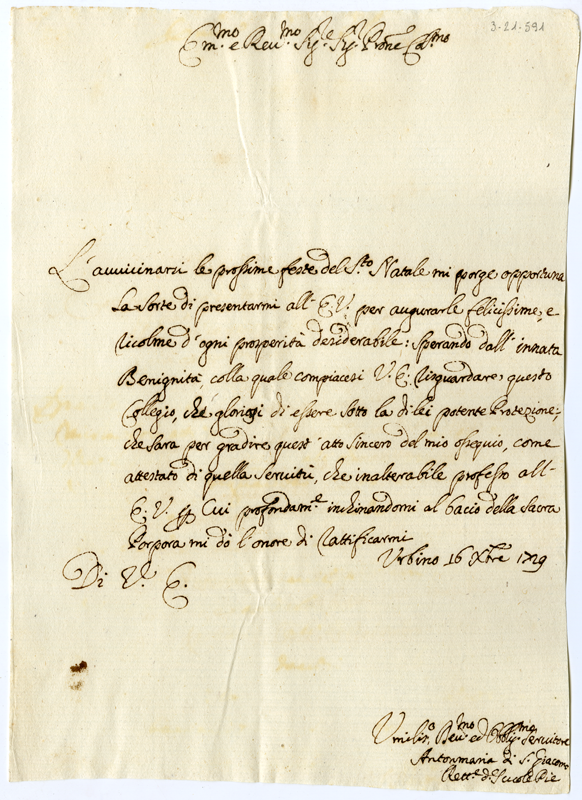 3-21-591
Em.mo e Rev.mo Sig.re Sig.re Prōne Col.mo
L'avvicinarsi le prossime feste del S.to Natale mi porge opportuna
la sorte di presentarmi all' E. V. per augurarle felicissime, e
ricolme d'ogni prosperità desiderabile: sperando dall' innata
Benignità, colla quale compiacesi V. E. risguardare questo
Collegio, che gloriasi di essere sotto la di lei potente Protezione;
che sarà per gradire quest' atto sincero del mio ossequio, come
attestato di quella servitù, che inalterabile professo all'
E. V. Cui profondam.e inchinandomi al bacio della Sacra
Porpora mi dò l'onore di rattificarmi
Urbino 16 Xbre 1729
Di V. E.
Umilis.o Dev.mo ed Obblig.mo Servitore
Antonmaria di S. Giacomo
Rett.e d. Scuole Pie